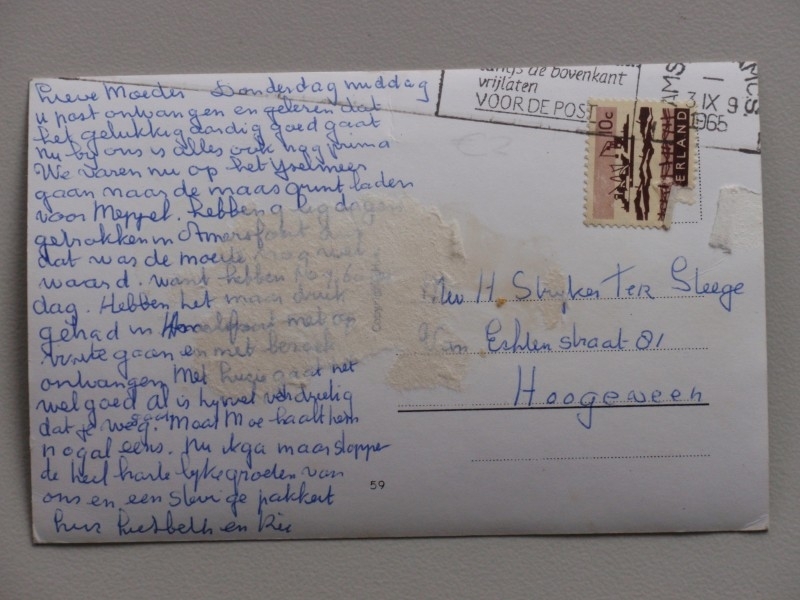 Lieve Moeder Donderdag middag
u post ontvangen en gelezen dat
het gelukkig aardig goed gaat
Nu by ons is alles ook nog prima
We varen nu op het Yselmeer
gaan naar de maas grint laden
voor Meppel. hebben 9 ligdagen
getrokken in Amersfoort
dat was de moeite nog wel
waard. want hebben nog
dag. Hebben het maar druk
gehad in met op
visite gaan en met bezoek
ontvangen Met gaat het
wel goed al is hy wel
dat je weg gaat. Maar Moe haalt hem
nogal eens. Nu ik ga maar stoppen
de heel harte lyke groeten van
ons en een stevige pakkert
Liesbeth en
langs de bovenkant
vrijlaten
VOOR DE POST
3 IX 9
1965
10c
ERLAND
Mev H. Stryker Ter Steege
straat 81
Hoogeveen
Copyright
59